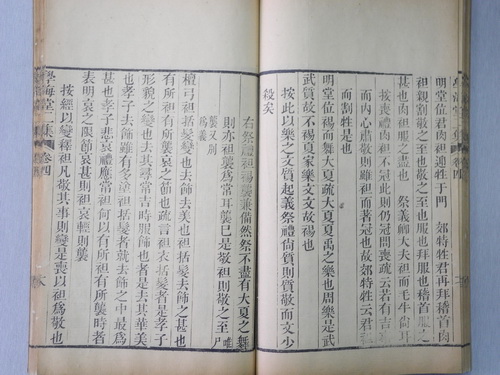 明堂位肉袒迎牲于門　郊特牲君再拜稽首肉
袒親割敬之至也敬之至也服也拜服也稽首服之
甚也肉袒服之盡也　祭義卿大夫袒而毛牛尙耳
按喪禮袒不冠此則仍冠問喪疏云若有吉
而內心肅敬則雖袒而著冠也故郊特牲云君
而割牲是也
明堂位裼而舞大夏疏大夏夏禹之樂也周樂是武
武質故不裼夏家樂文文故裼也
按此以樂之文質起義祭禮尙質則質敬而文少
殺矣
右祭禮袒裼襲兼備然祭不盡有大夏之舞
則亦袒襲爲常耳襲巳是敬袒則敬之至唯尸
襲又別爲義
檀弓袒括髮變也去飾去美也袒括髮去飾之甚也
有所袒有所襲哀之節也疏言袒衣括髮者是孝子
形貌之變也去其尋常吉時服飾也者是去其華美
也孝子去飾雖有多塗袒括髮者就去飾之中最爲
甚也孝子悲哀禮應常袒何以有所袒有所襲時者
表明哀之限節哀甚則袒哀輕則襲
按經以變釋袒凡敬其事則變是喪以袒爲敬也
學海堂二集　卷四　八